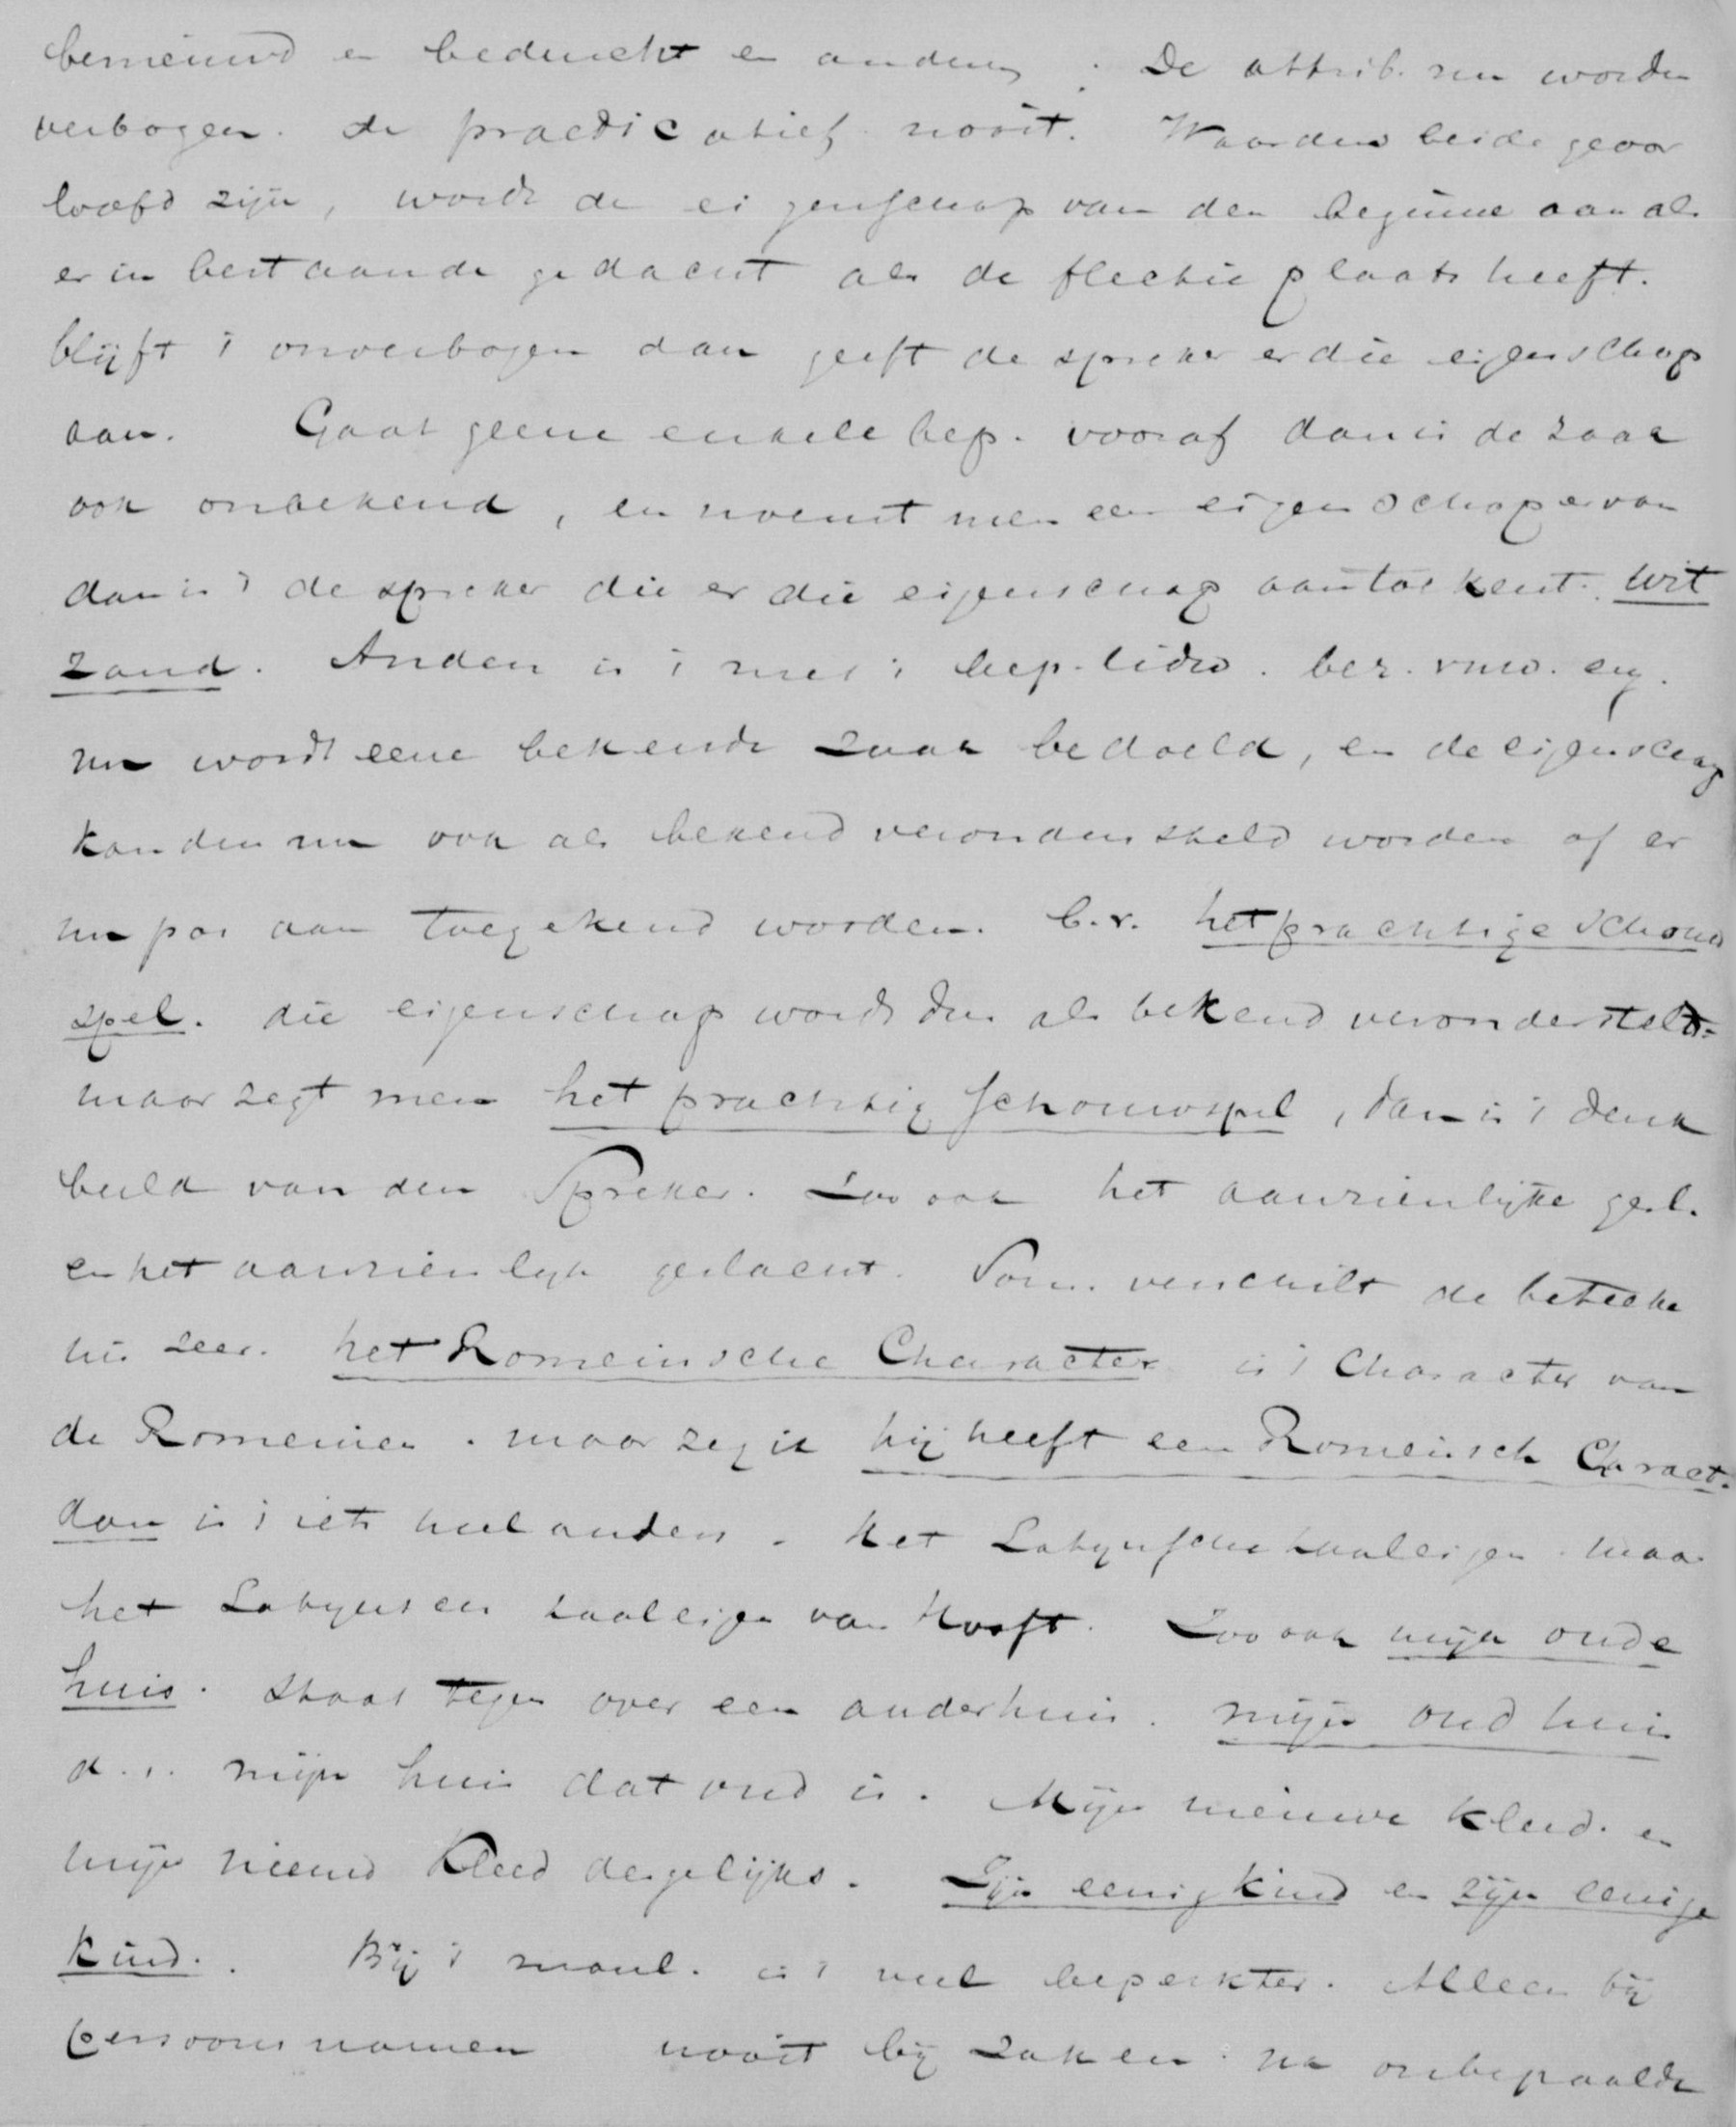 bemeund en beducht en anders. De attrib. nu worden
verbogen. de praedicatief nooit. Waar den beide geoor
loofd zijn, wordt de eigenschap van den beginne aan als
er in bestaande gedacht als de flectie plaats heeft.
blijft 't onverbogen dan geeft de spreker er die eigenschap
aan. Gaat geene enkele bep. vooraf dan is de zaak
ook onbekend, en noemt men een eigenschap ervan
dan is 't de spreker die er die eigenschap aan toekent. wit
zand. Anders is 't met 't bep. lidw. bez. vnw. enz.
nu wordt eene bekende zaak bedoeld, en de eigenschap
kan den nu ook als bekend verondersteld worden of er
nu pas aan toegekend worden. b.v. het prachtige schouw
spel. die eigenschap wordt dus als bekend verondersteld.
maar zegt men het prachtig schouwspel, dan is 't denk
beeld van den Spreker. Zoo ook het aanzienlijke gesl.
en het aanzienlijk geslacht. Som. verschilt de beteeke
nis zeer. het Romeinsche Character is 't Character van
de Romeinen. maar zeg ik hij heeft een Romeinsch Caract.
dan is 't iets heel anders. Het Latynsche taaleigen. maar
het Latynsch taaleigen van Hooft. Zoo ook mijn oude
huis. staat tegen over een ander huis. mijn oud huis
d.i. mijn huis dat oud is. Mijn nieuwe kleed. en
mijn nieuw kleed dergelijks. Zijn eenig kind en zijn eenige
kind. Bij 't manl. is 't veel beperkter. Alleen bij
persoonsnamen nooit bij zaken. na onbepaalde